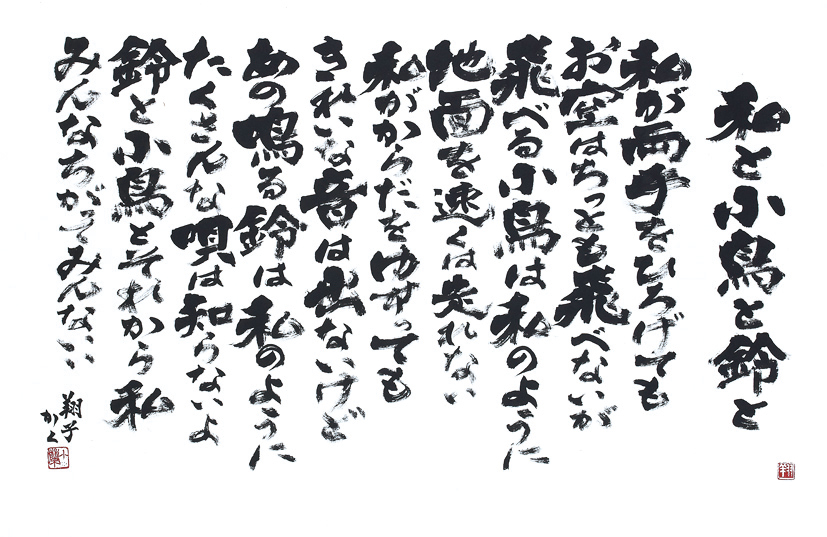 私と小鳥と鈴と
私が両手をひろげても
お空はちっとも飛べないが
飛べる小鳥は私のように
地面を速くは走れない
私がからだをゆすっても
きれいな音は出ないけど
あの鳴る鈴は私のように
たくさんな唄は知らないよ
鈴と小鳥とそれから私
みんなちがってみんないい
翔子
かく